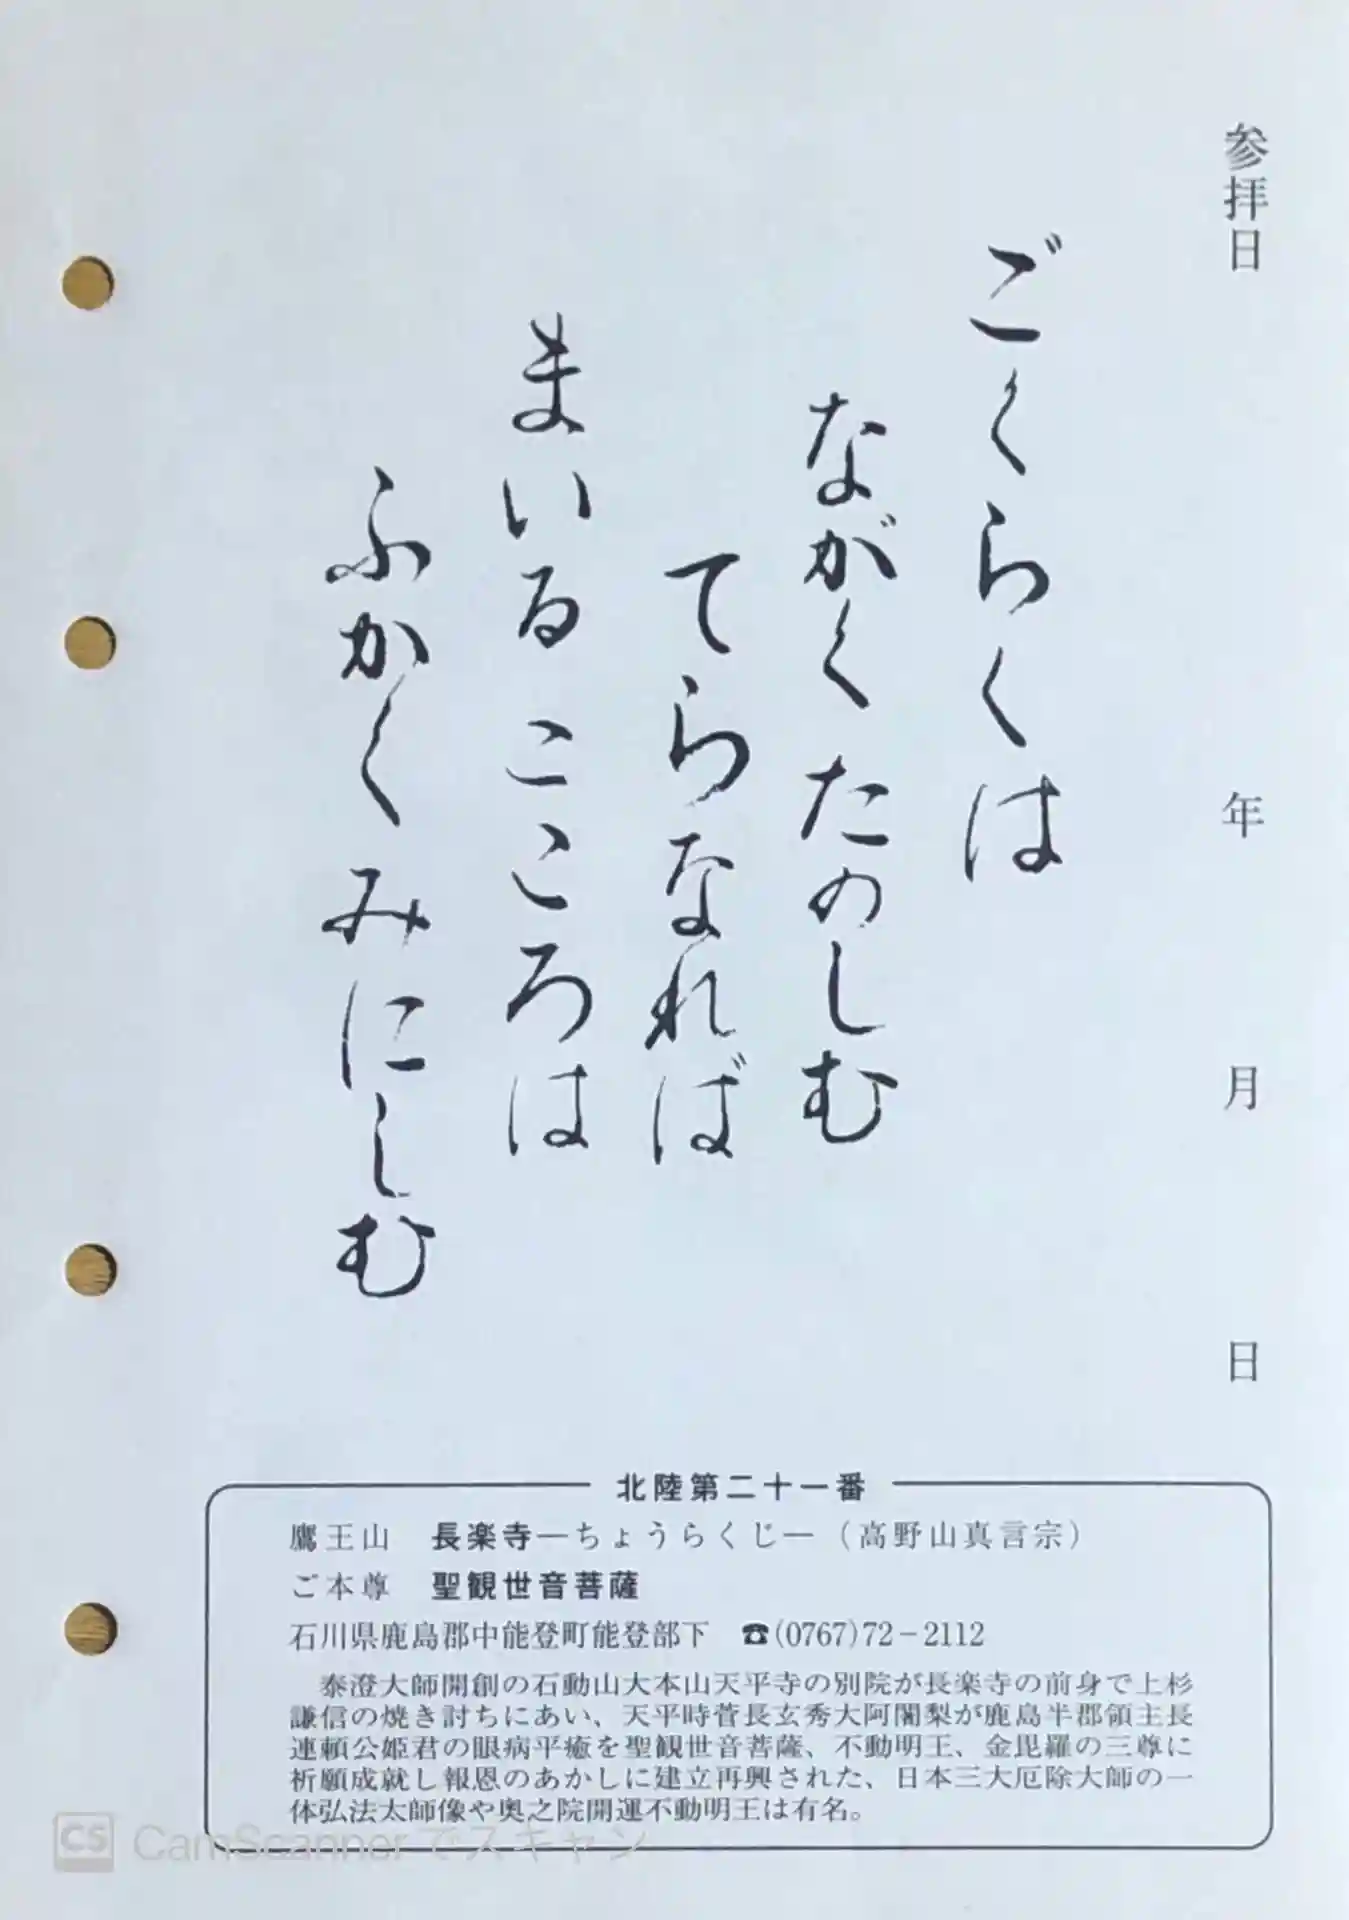 参拝日　年　月　日
ごくらくは
ながくたのしむ
てらなれば
まいるこころは
ふかくみにしむ
北陸第二十一番
鷹王山　長楽寺―ちょうらくじ―（高野山真言宗）
ご本尊　聖観世音菩薩
石川県鹿島郡中能登町能登部下　☎(0767)72－2112
泰澄大師開創の石動山大本山天平寺の別院が長楽寺の前身で上杉
謙信の焼き討ちにあい、天平時菅長玄秀大阿闍梨が鹿島半郡領主長
連頼公姫君の眼病平癒を聖観世音菩薩、不動明王、金毘羅の三尊に
祈願成就し報恩のあかしに建立再興された、日本三大厄除大師の一
体弘法太師像や奥之院開運不動明王は有名。
CS CamScanner でスキャン